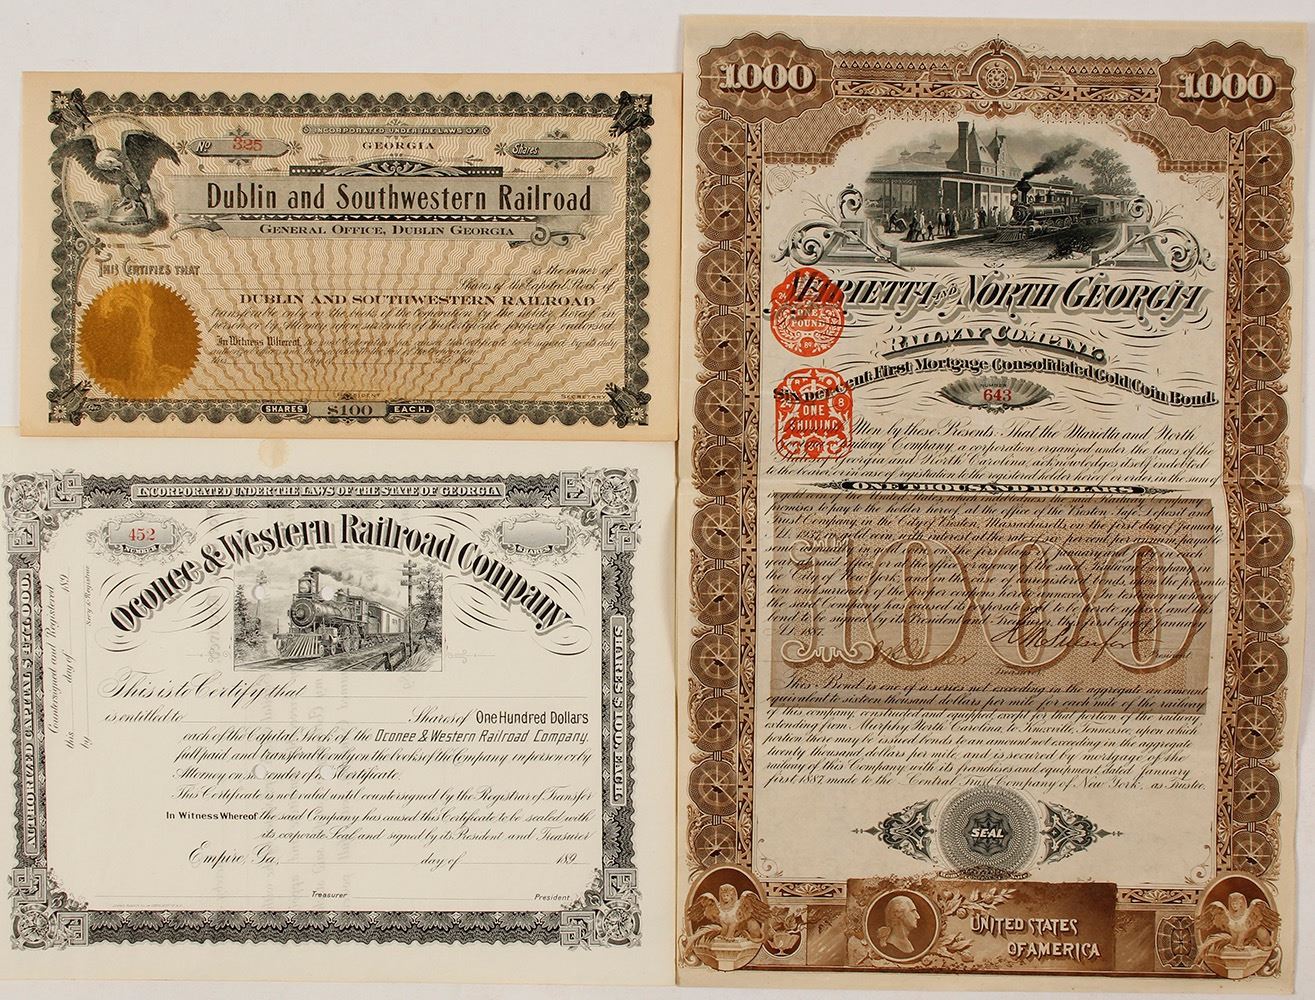 INCORPORATED UNDER THE LAWS OF
GEORGIA
No 325
Shares
Dublin and Southwestern Railroad
GENERAL OFFICE, DUBLIN GEORGIA
THIS CERTIFIES THAT
is the owner of
Shares of the Capital Stock of
DUBLIN AND SOUTHWESTERN RAILROAD
transferable only on the books of the Corporation by the holder hereof in
person or by Attorney upon surrender of this Certificate properly endorsed.
In Witness Whereof, the said Corporation has caused this Certificate to be signed by its duly
PRESIDENT
SECRETARY
SHARES $100 EACH.
INCORPORATED UNDER THE LAWS OF THE STATE OF GEORGIA
452
NUMBER
SHARES
Oconee & Western Railroad Company
AUTHORIZED CAPITAL
SHARES $100. EACH
Countersigned and Registered
this day of 189
by
This is to Certify that
is entitled to Shares of One Hundred Dollars
each of the Capital Stock of the Oconee & Western Railroad Company,
full paid, and transferable only on the books of the Company in person or by
Attorney on surrender of this Certificate.
This Certificate is not valid until countersigned by the Registrar of Transfer
In Witness Whereof the said Company has caused this Certificate to be sealed with
its corporate Seal, and signed by its President and Treasurer
Empire, Ga, day of 189
Treasurer
President
1000 1000
MARIETTA AND NORTH GEORGIA
RAILWAY COMPANY.
Six per cent First Mortgage Consolidated Gold Coin Bond.
NUMBER
643
ONE
POUND
ONE
SHILLING
Men by these Presents: That the Marietta and North
Railway Company, a corporation organized under the laws of the
States of Georgia and North Carolina, acknowledges itself indebted
to the bearer, or in case of registration, to the registered holder hereof, in the sum of
ONE THOUSAND DOLLARS
promises to pay to the holder hereof, at the office of the Boston Safe Deposit and
Trust Company, in the City of Boston, Massachusetts, on the first day of January,
A.D. 1937, in gold coin, with interest at the rate of six per cent per annum, payable
semi annually in gold coin on the first days of January and July in each
year at said office, or at the office or agency of the said Railway Company
the City of New York, and on
the said Company has caused its corporate seal to be hereto affixed and this
bond to be signed by its President and Treasurer, the first day of January
A.D. 1887.
1000
President
Treasurer
This Bond is one of a series not exceeding in the aggregate an amount
equivalent to sixteen thousand dollars per mile for each mile of the railway
of this company, constructed and equipped, except for that portion of the railway
extending from Murphy, North Carolina, to Knoxville, Tennessee, upon which
portion there may be issued bonds to an amount not exceeding in the aggregate
twenty thousand dollars per mile, and is secured by mortgage of the
railway of this Company with its franchises and equipment, dated January
first 1887, made to the Central Trust Company of New York, as Trustee.
SEAL
UNITED STATES
OF AMERICA